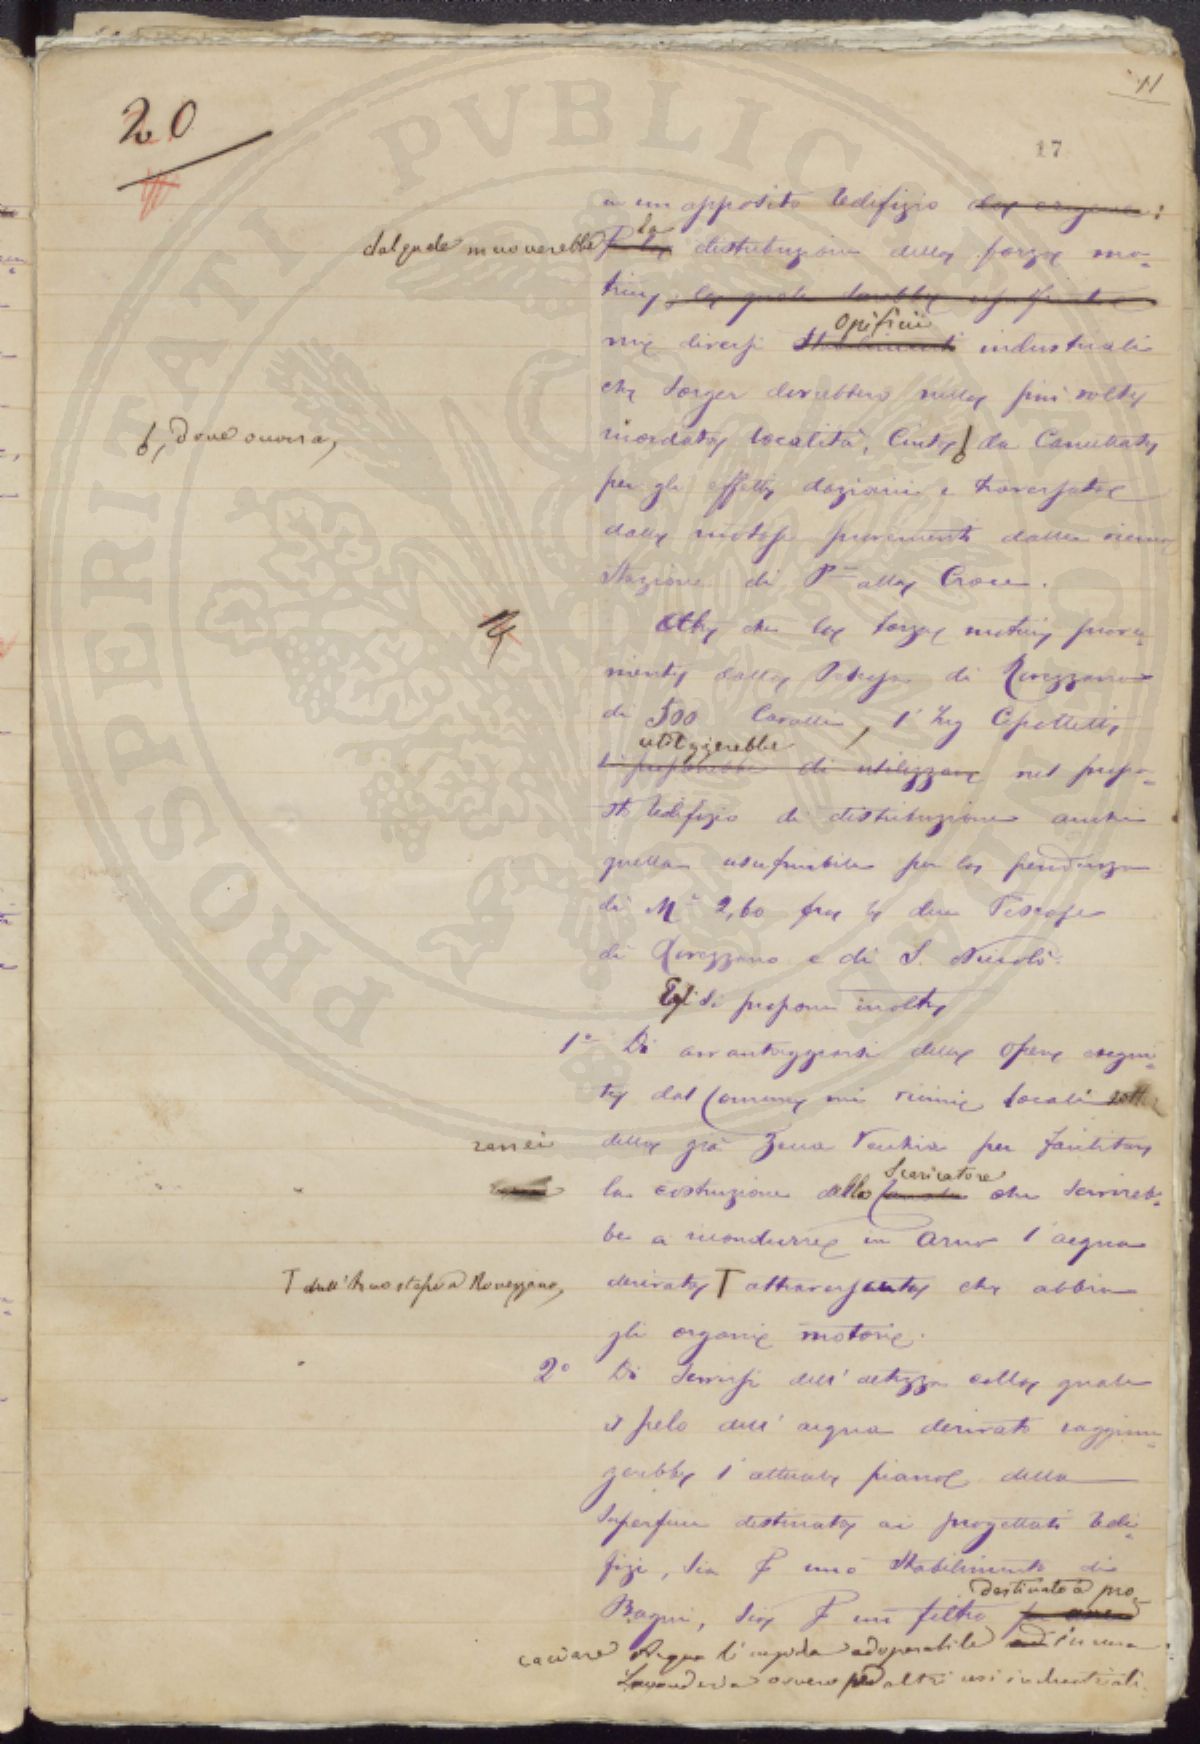 20
11
17
in un apposito Edifizio
dal quale muoverebbe la distribuzione della forza mo-
trice
nei diversi Opificii industriali
che sorger dovrebbero nella più volte
ricordata località, Cinta da Cancellata
, dove occorra,
per gli effetti daziarii e traversata
dalle rotaje provenienti dalla vicina
Stazione di P.ta alla Croce.
Oltre che la forza motrice prove-
niente dalla Pescaja di Rovezzano
di 500 Cavalli, l'Ing Cipolletti
utilizzerebbe
di utilizzare nel propo-
sto Edifizio di distribuzione anche
quella usufruibile per la pendenza
di M.i 2,60 fra le due Pescaje
di Rovezzano e di S. Niccolò.
Egli si propone inoltre
1° Di avvantaggiarsi delle opere esegui-
te dal Comune nei vicini locali
della già Zecca Vecchia per facilitare
la costruzione dello Scaricatore che servireb-
be a ricondurre in Arno l'acqua
derivata T attraversato che abbia
T dall'Arno stesso a Rovezzano,
gli organi motori.
2° Di servirsi dell'altezza colla quale
il pelo dell'acqua derivata raggiun-
gerebbe l'attuale piano della
superficie destinata ai progettati Edi-
fizi, sia P uno Stabilimento di
Bagni, sia P un filtro destinato a pro-
cacciare Acqua limpida adoperabile in una
Lavanderia ovvero ad altri usi industriali.